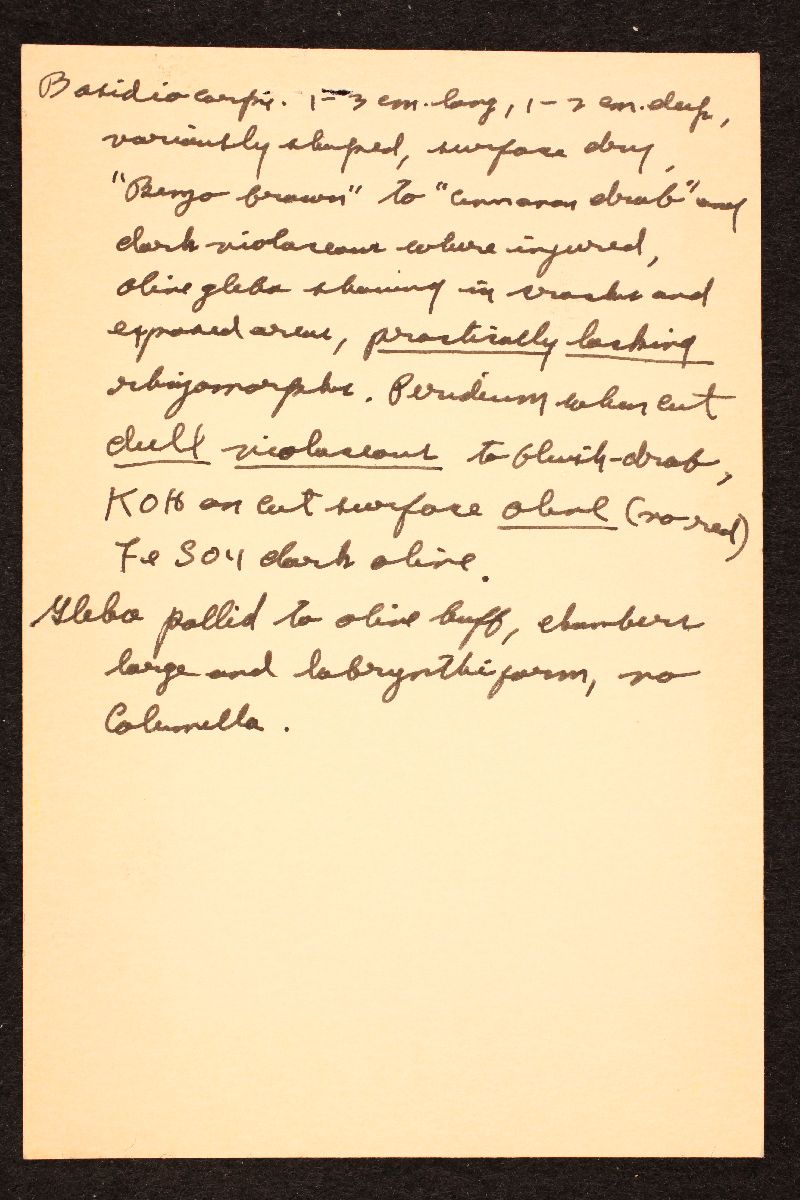 Basidiocarps. 1–3 cm. long, 1–2 cm. deep,
variously shaped, surface dry,
"Benzo brown" to "cinnamon drab" and
dark violaceous where injured,
olive gleba showing in cracks and
exposed areas, practically lacking
rhizomorphs. Peridium when cut
dull violaceous to bluish-drab,
KOH on cut surface olive (no red)
FeSO4 dark olive.
Gleba pallid to olive buff, chambers
large and labrynthiform, no
Columella.